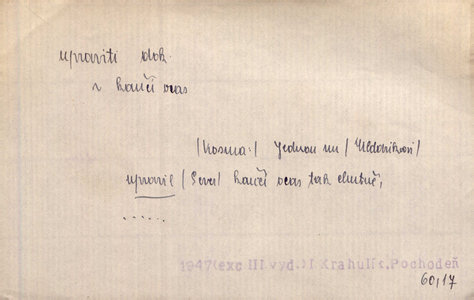 upraviti dok.
v kančí ocas
(Kosma:) Jednou mu (Uldarikovi)
upravil (Sever) kančí ocas tak chutně,
......
1947(exc III.vyd.) I Krahulík.Pochodeň
60,17